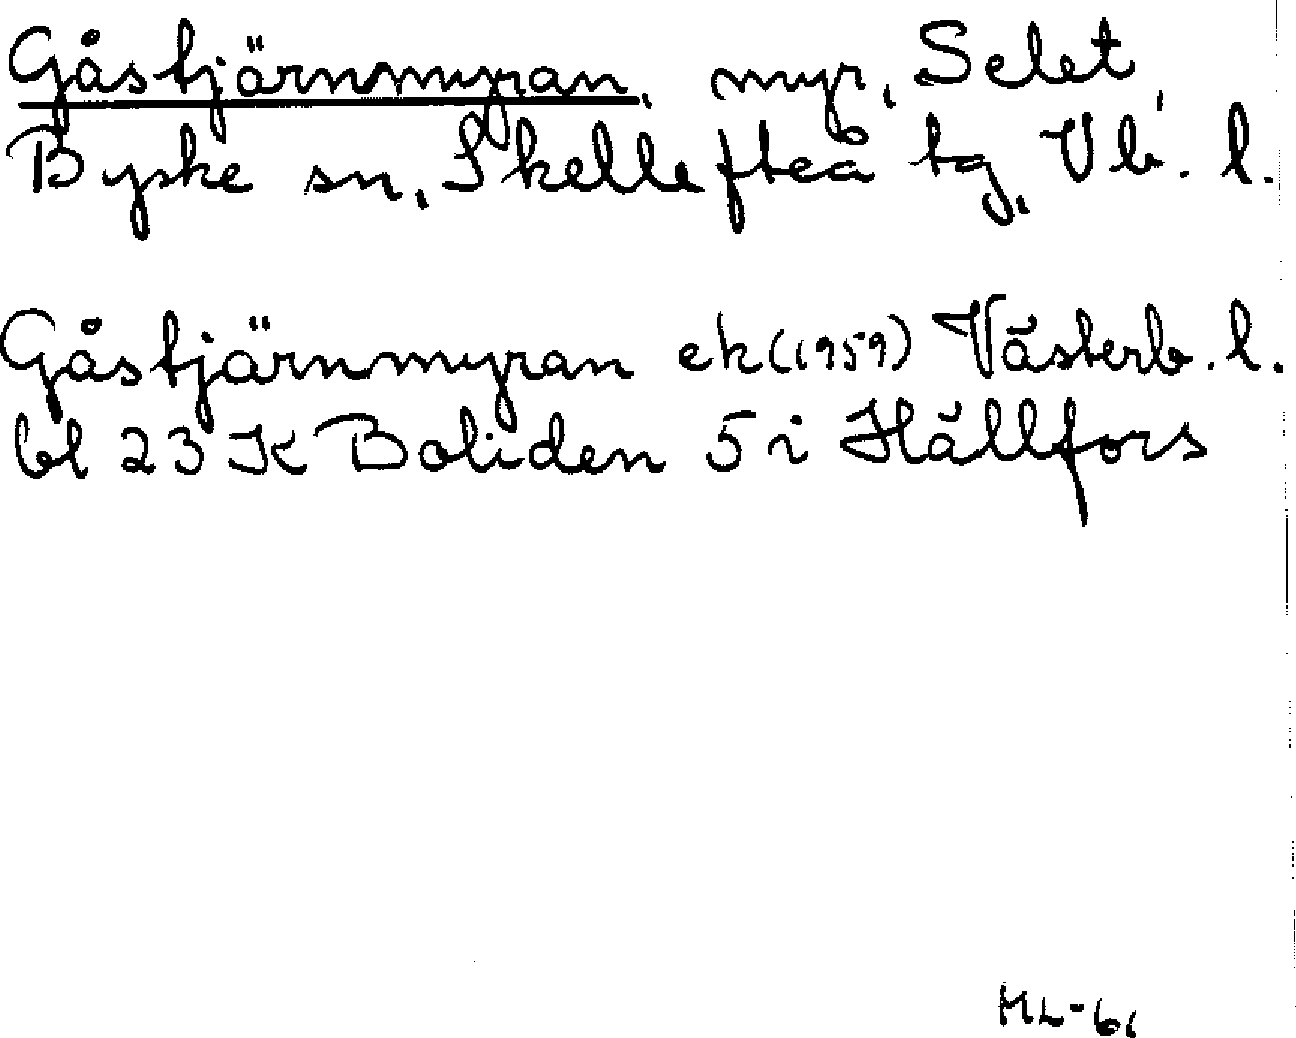 Gåstjärnmyran, myr, Selet,
Byske sn, Skellefteå tg, Vb. l.
Gåstjärnmyran ek (1959) Västerb. l.
bl 23 K Boliden 5 i Hällfors
ML-61